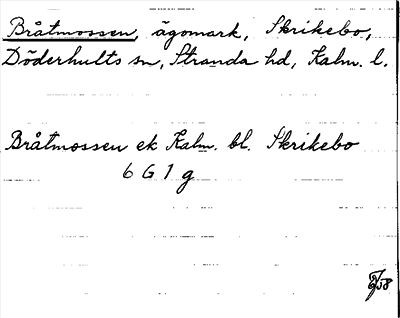 Bråtmossen, ägomark, Skrikebo,
Döderhults sn, Stranda hd, Kalm. l.
Bråtmossen ek Kalm. bl. Skrikebo
6 G 1 g